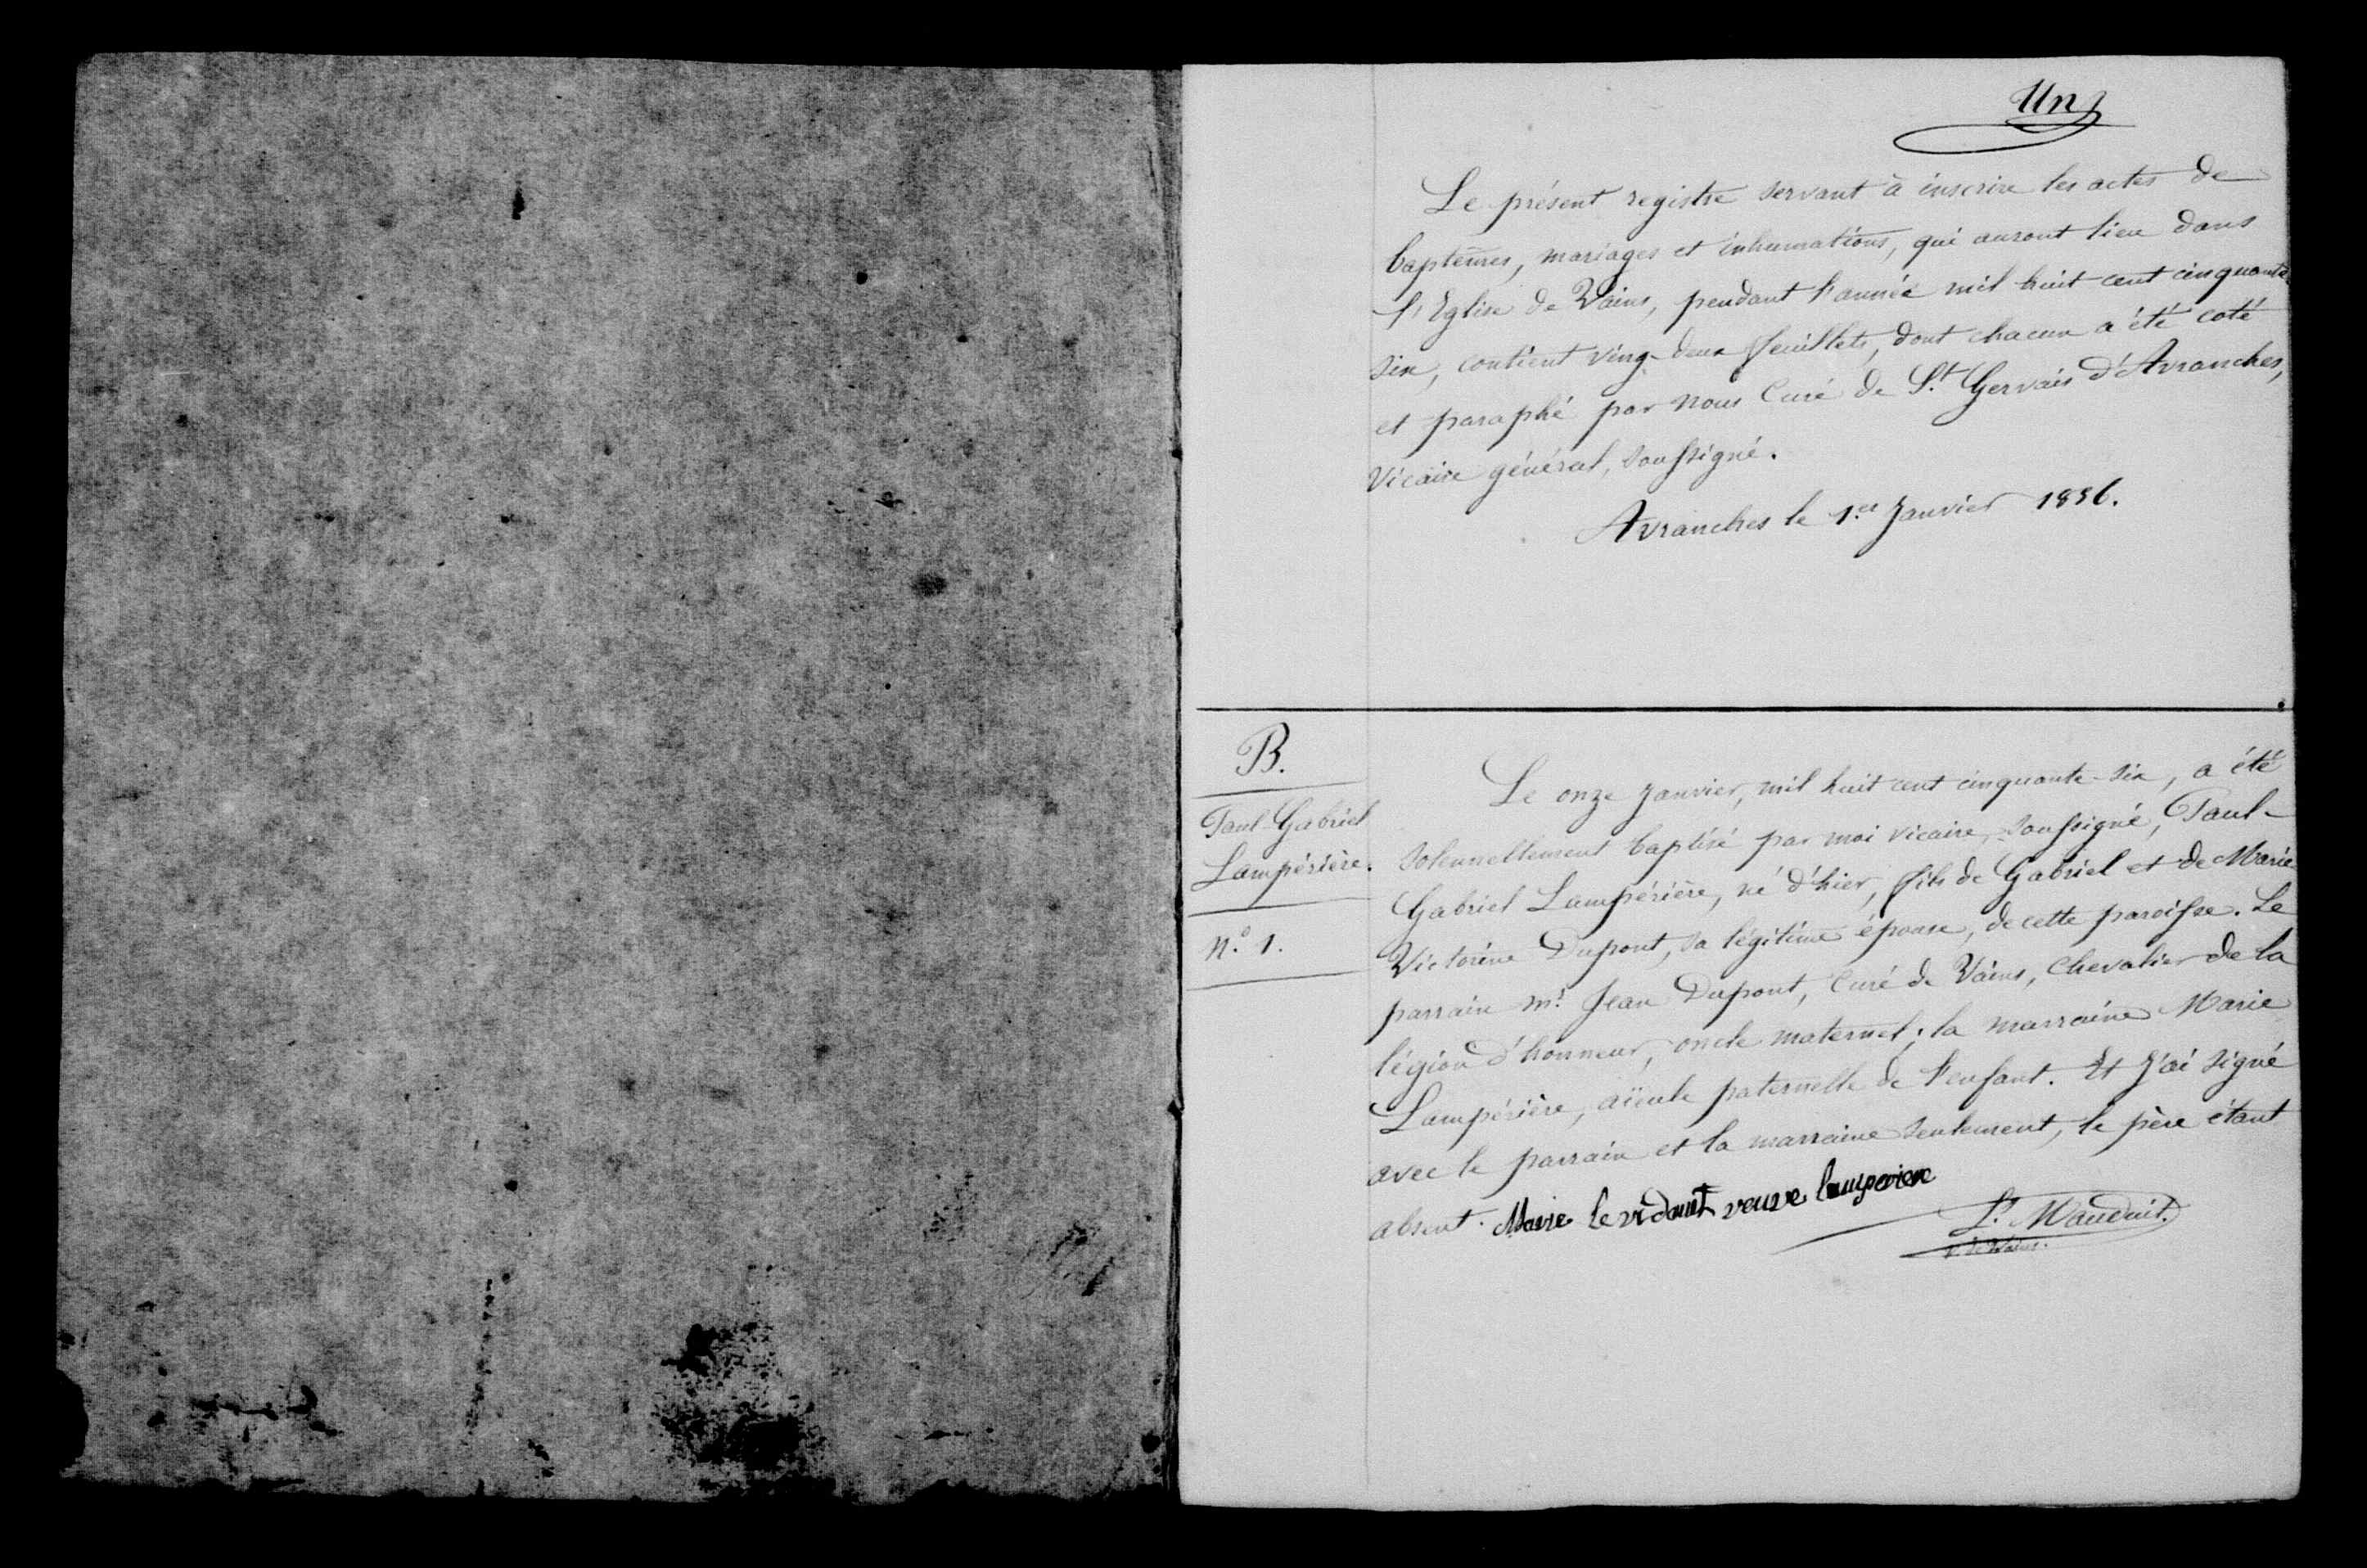 Un
Le présent registre servant à inscrire les actes de
baptêmes, mariages et inhumations, qui auront lieu dans
l'Eglise de Vains, pendant l'année mil huit cent cinquante
six, contient ving-deux feuillets, dont chacun a été coté
et paraphé par nous Curé de St. Gervais d'Avranches,
Vicaire général, soussigné.
Avranches le 1er Janvier 1856.
B.
Paul-Gabriel
Lampérière.
N.o 1.
Le onze Janvier, mil huit cent cinquante-six, a été
solennellement baptisé par moi vicaire, soussigné, Paul-
Gabriel Lampérière, né d'hier, fils de Gabriel et de Marie
Victorine Dupont, sa légitime épouse, de cette paroisse. Le
parrain Mr. Jean Dupont, Curé de Vains, Chevalier de la
légion d'honneur, oncle maternel; la marraine Marie
Lampérière, aïeule paternelle de l'enfant. Et j'ai signé
avec le parrain et la marraine seulement, le père étant
absent. Marie le vidouit veuve lamperiere
L. Mauduit.
v. de Vains.